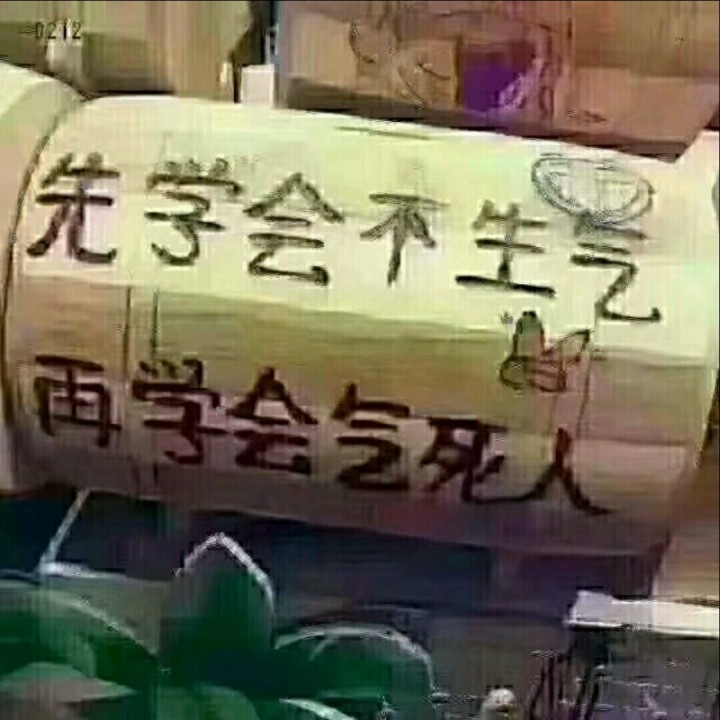 0212
先学会不生气
再学会气死人